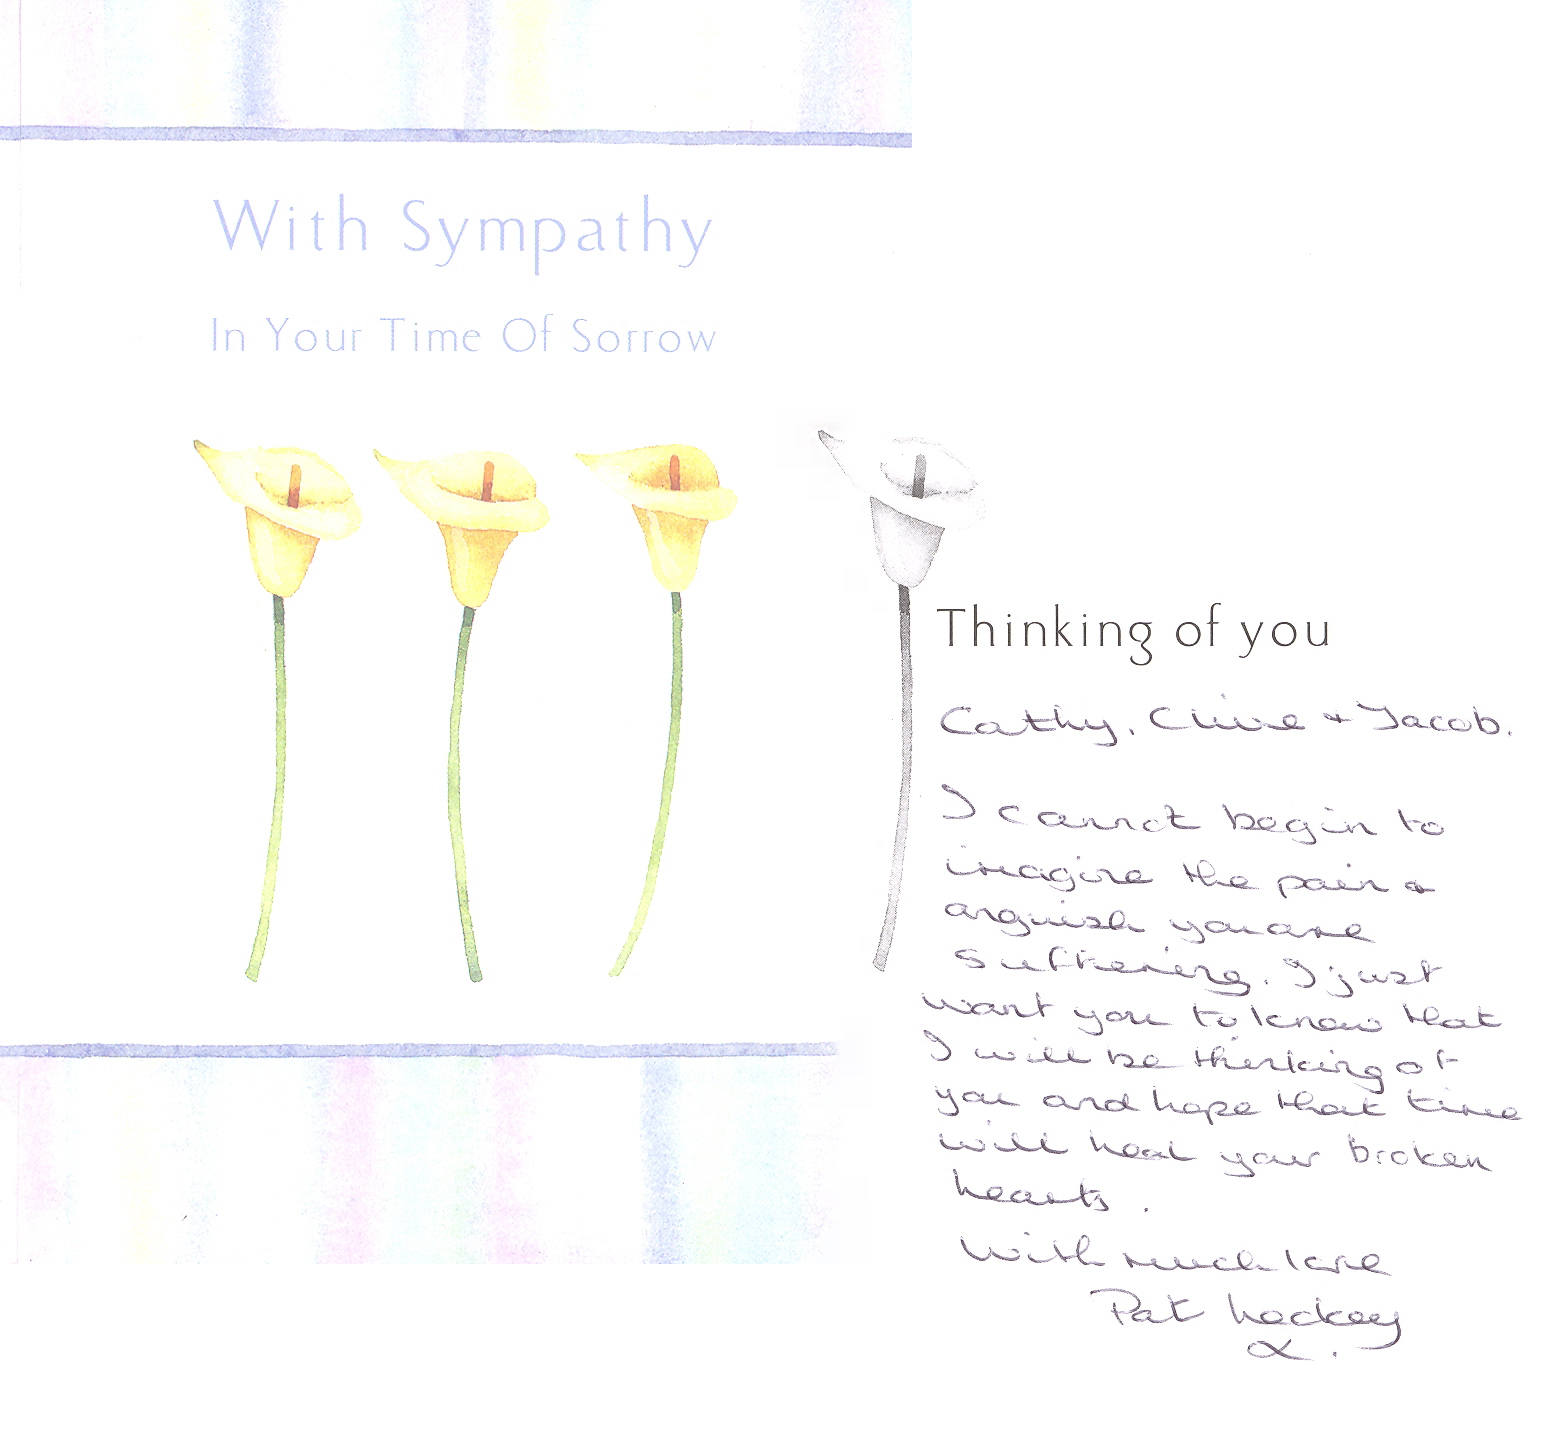 With Sympathy
In Your Time Of Sorrow
Thinking of you
Cathy, Clive + Jacob.
I cannot begin to
imagine the pain &
anguish you are
suffering. I just
want you to know that
I will be thinking of
you and hope that time
will heal your broken
hearts.
With much love
Pat
x.